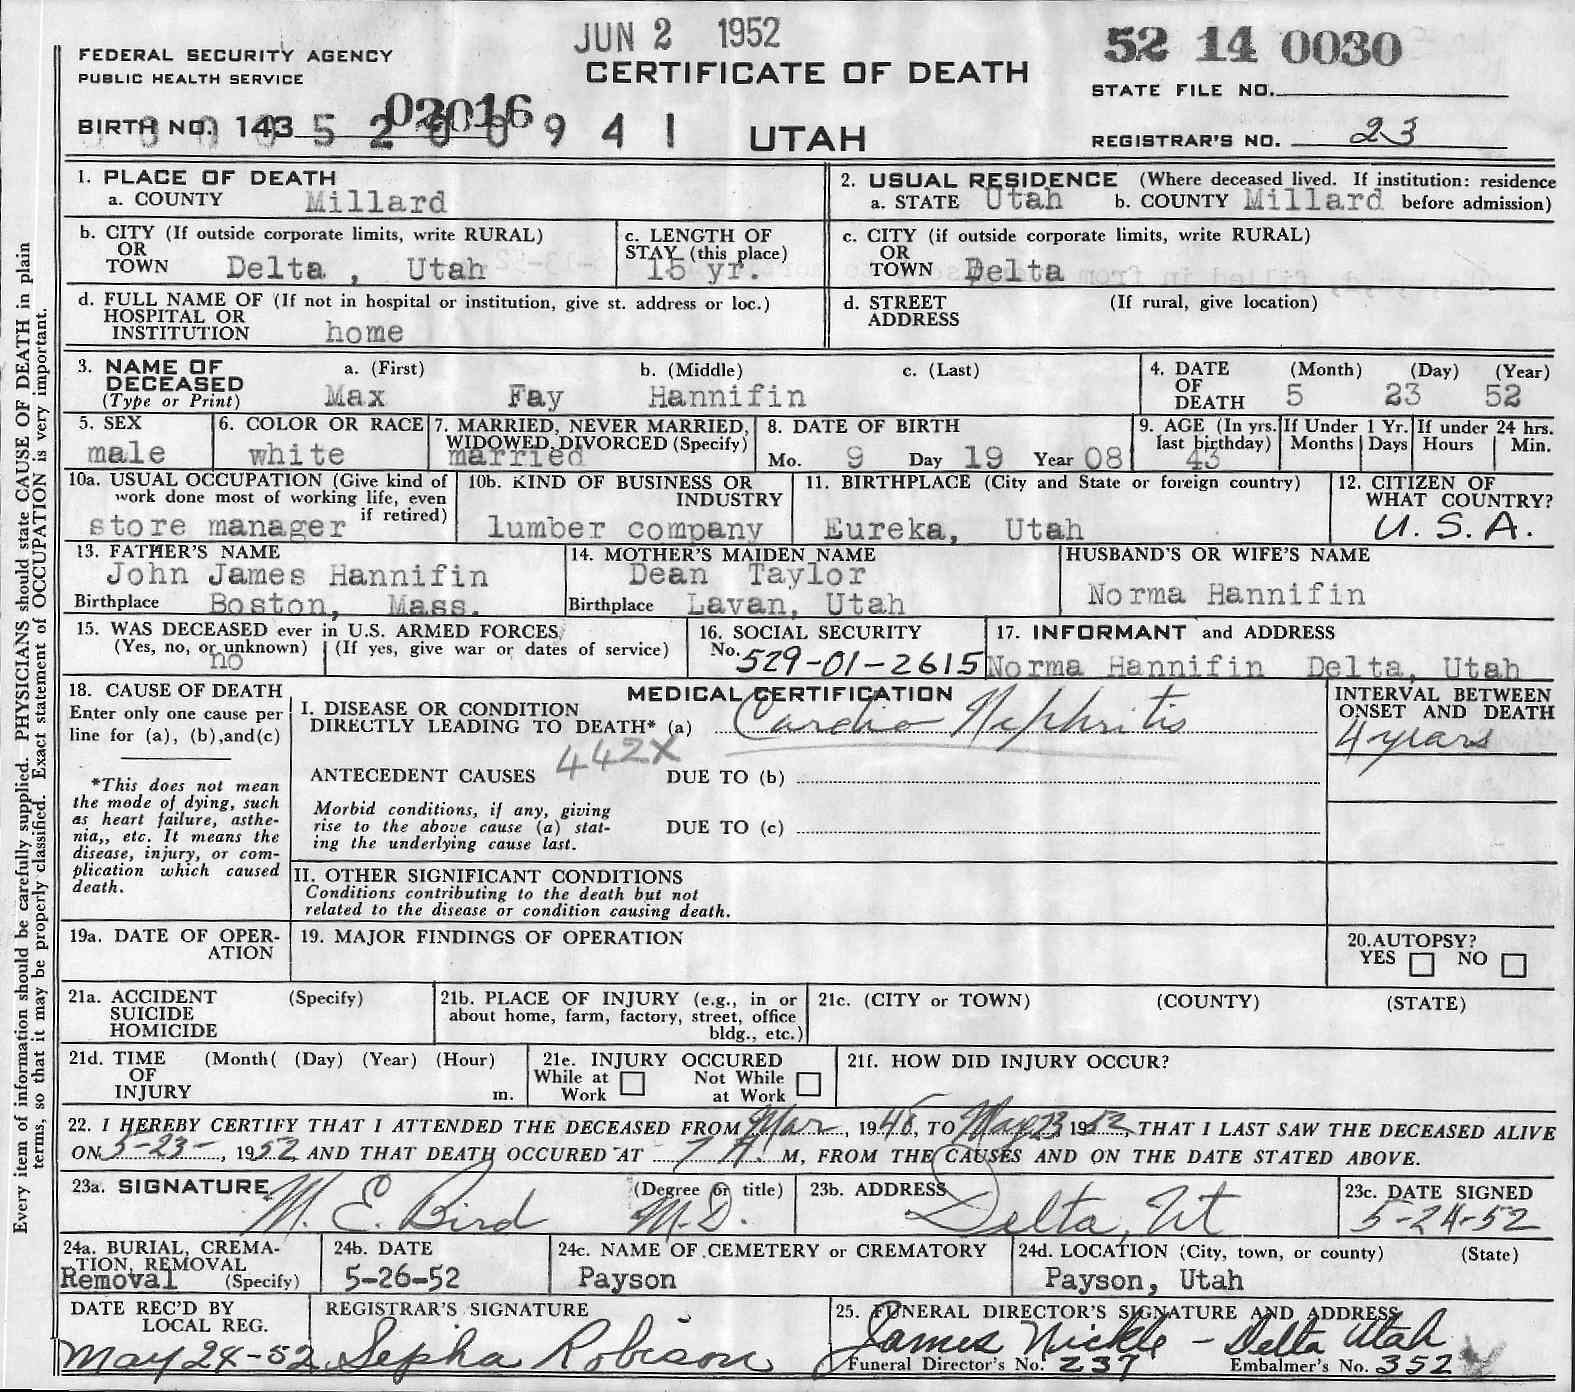 JUN 2 1952
52 14 0030
FEDERAL SECURITY AGENCY
PUBLIC HEALTH SERVICE
CERTIFICATE OF DEATH
STATE FILE NO.
BIRTH NO. 143 02016
941
UTAH
REGISTRAR'S NO. 23
Every item of information should be carefully supplied. PHYSICIANS should state CAUSE OF DEATH in plain
terms, so that it may be properly classified. Exact statement of OCCUPATION is very important.
1. PLACE OF DEATH
a. COUNTY Millard
2. USUAL RESIDENCE (Where deceased lived. If institution: residence
a. STATE Utah b. COUNTY Millard before admission)
b. CITY (If outside corporate limits, write RURAL)
OR
TOWN Delta , Utah
c. LENGTH OF
STAY (this place)
15 yr.
c. CITY (if outside corporate limits, write RURAL)
OR
TOWN Delta
d. FULL NAME OF (If not in hospital or institution, give st. address or loc.)
HOSPITAL OR
INSTITUTION home
d. STREET (If rural, give location)
ADDRESS
3. NAME OF DECEASED (Type or Print)
a. (First) b. (Middle) c. (Last)
Max Fay Hannifin
4. DATE OF DEATH (Month) (Day) (Year)
5 23 52
5. SEX
male
6. COLOR OR RACE
white
7. MARRIED, NEVER MARRIED,
WIDOWED, DIVORCED (Specify)
married
8. DATE OF BIRTH
Mo. 9 Day 19 Year 08
9. AGE (In yrs. last birthday)
43
If Under 1 Yr. Months Days
If under 24 hrs. Hours Min.
10a. USUAL OCCUPATION (Give kind of
work done most of working life, even
if retired)
store manager
10b. KIND OF BUSINESS OR
INDUSTRY
lumber company
11. BIRTHPLACE (City and State or foreign country)
Eureka, Utah
12. CITIZEN OF
WHAT COUNTRY?
U.S.A.
13. FATHER'S NAME
John James Hannifin
Birthplace Boston, Mass.
14. MOTHER'S MAIDEN NAME
Dean Taylor
Birthplace Lavan, Utah
HUSBAND'S OR WIFE'S NAME
Norma Hannifin
15. WAS DECEASED ever in U.S. ARMED FORCES
(Yes, no, or unknown) (If yes, give war or dates of service)
no
16. SOCIAL SECURITY
No. 529-01-2615
17. INFORMANT and ADDRESS
Norma Hannifin Delta, Utah
18. CAUSE OF DEATH
Enter only one cause per
line for (a), (b),and(c)
*This does not mean
the mode of dying, such
as heart failure, asthe-
nia,, etc. It means the
disease, injury, or com-
plication which caused
death.
MEDICAL CERTIFICATION
I. DISEASE OR CONDITION
DIRECTLY LEADING TO DEATH* (a) Cardio Nephritis
442X
ANTECEDENT CAUSES DUE TO (b)
Morbid conditions, if any, giving
rise to the above cause (a) stat-
ing the underlying cause last.
DUE TO (c)
INTERVAL BETWEEN
ONSET AND DEATH
4 years
II. OTHER SIGNIFICANT CONDITIONS
Conditions contributing to the death but not
related to the disease or condition causing death.
19a. DATE OF OPER-
ATION
19. MAJOR FINDINGS OF OPERATION
20.AUTOPSY?
YES NO
21a. ACCIDENT (Specify)
SUICIDE
HOMICIDE
21b. PLACE OF INJURY (e.g., in or
about home, farm, factory, street, office
bldg., etc.)
21c. (CITY or TOWN) (COUNTY) (STATE)
21d. TIME (Month( (Day) (Year) (Hour)
OF
INJURY m.
21e. INJURY OCCURED
While at Work Not While at Work
21f. HOW DID INJURY OCCUR?
22. I HEREBY CERTIFY THAT I ATTENDED THE DECEASED FROM Mar, 1948, TO May 23 1952, THAT I LAST SAW THE DECEASED ALIVE
ON 5-23-, 1952 AND THAT DEATH OCCURED AT 7 A. M, FROM THE CAUSES AND ON THE DATE STATED ABOVE.
23a. SIGNATURE (Degree or title)
M. E. Bird M.D.
23b. ADDRESS
Delta, Ut
23c. DATE SIGNED
5-24-52
24a. BURIAL, CREMA-
TION, REMOVAL
Removal (Specify)
24b. DATE
5-26-52
24c. NAME OF CEMETERY or CREMATORY
Payson
24d. LOCATION (City, town, or county) (State)
Payson, Utah
DATE REC'D BY
LOCAL REG.
May 24-52
REGISTRAR'S SIGNATURE
Sepha Robison
25. FUNERAL DIRECTOR'S SIGNATURE AND ADDRESS
James Nickle - Delta Utah
Funeral Director's No. 237 Embalmer's No. 352